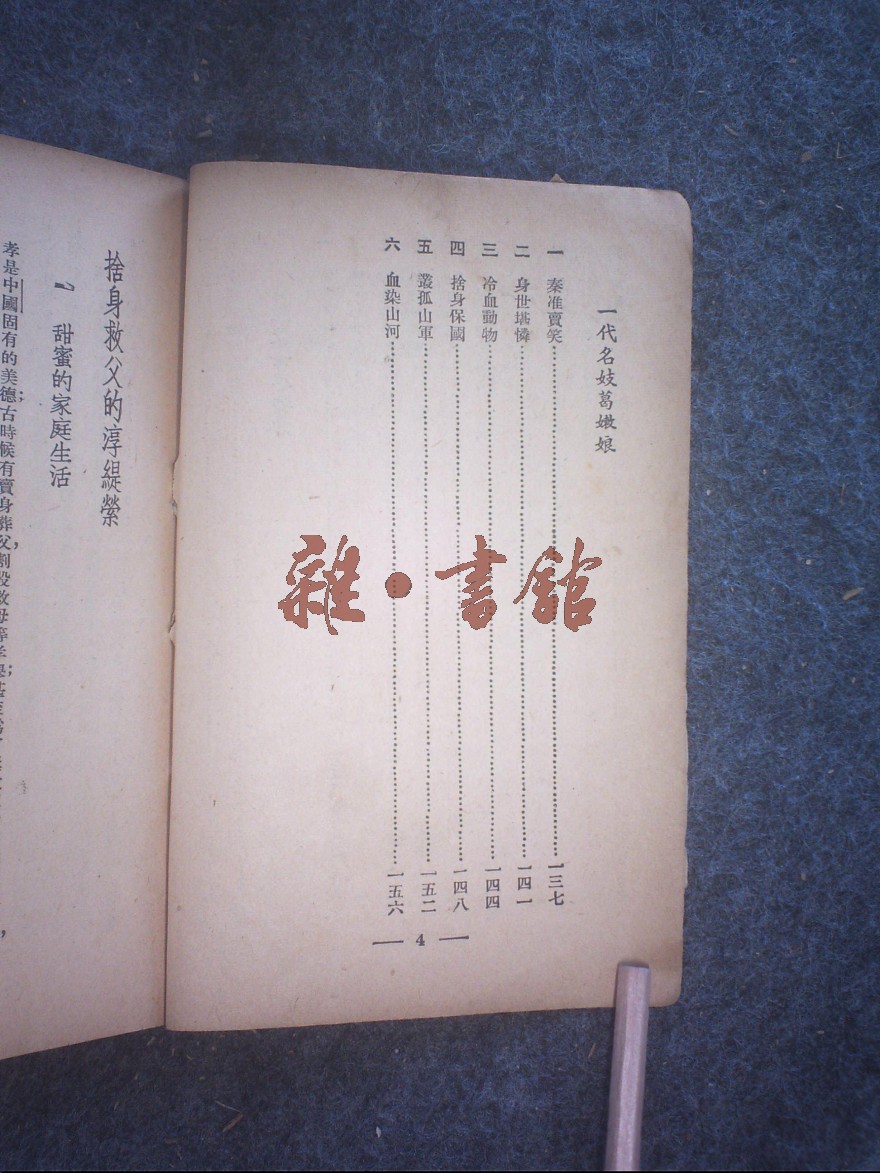 一代名妓葛嫩娘
一 秦准賣笑……一三七
二 身世堪憐……一四一
三 冷血動物……一四四
四 捨身保國……一四八
五 叢孤山軍……一五二
六 血染山河……一五六
— 4 —
捨身救父的淳緹縈
一 甜蜜的家庭生活
孝是中國固有的美德；古時候有賣身葬父，割股救母等
雜·書館